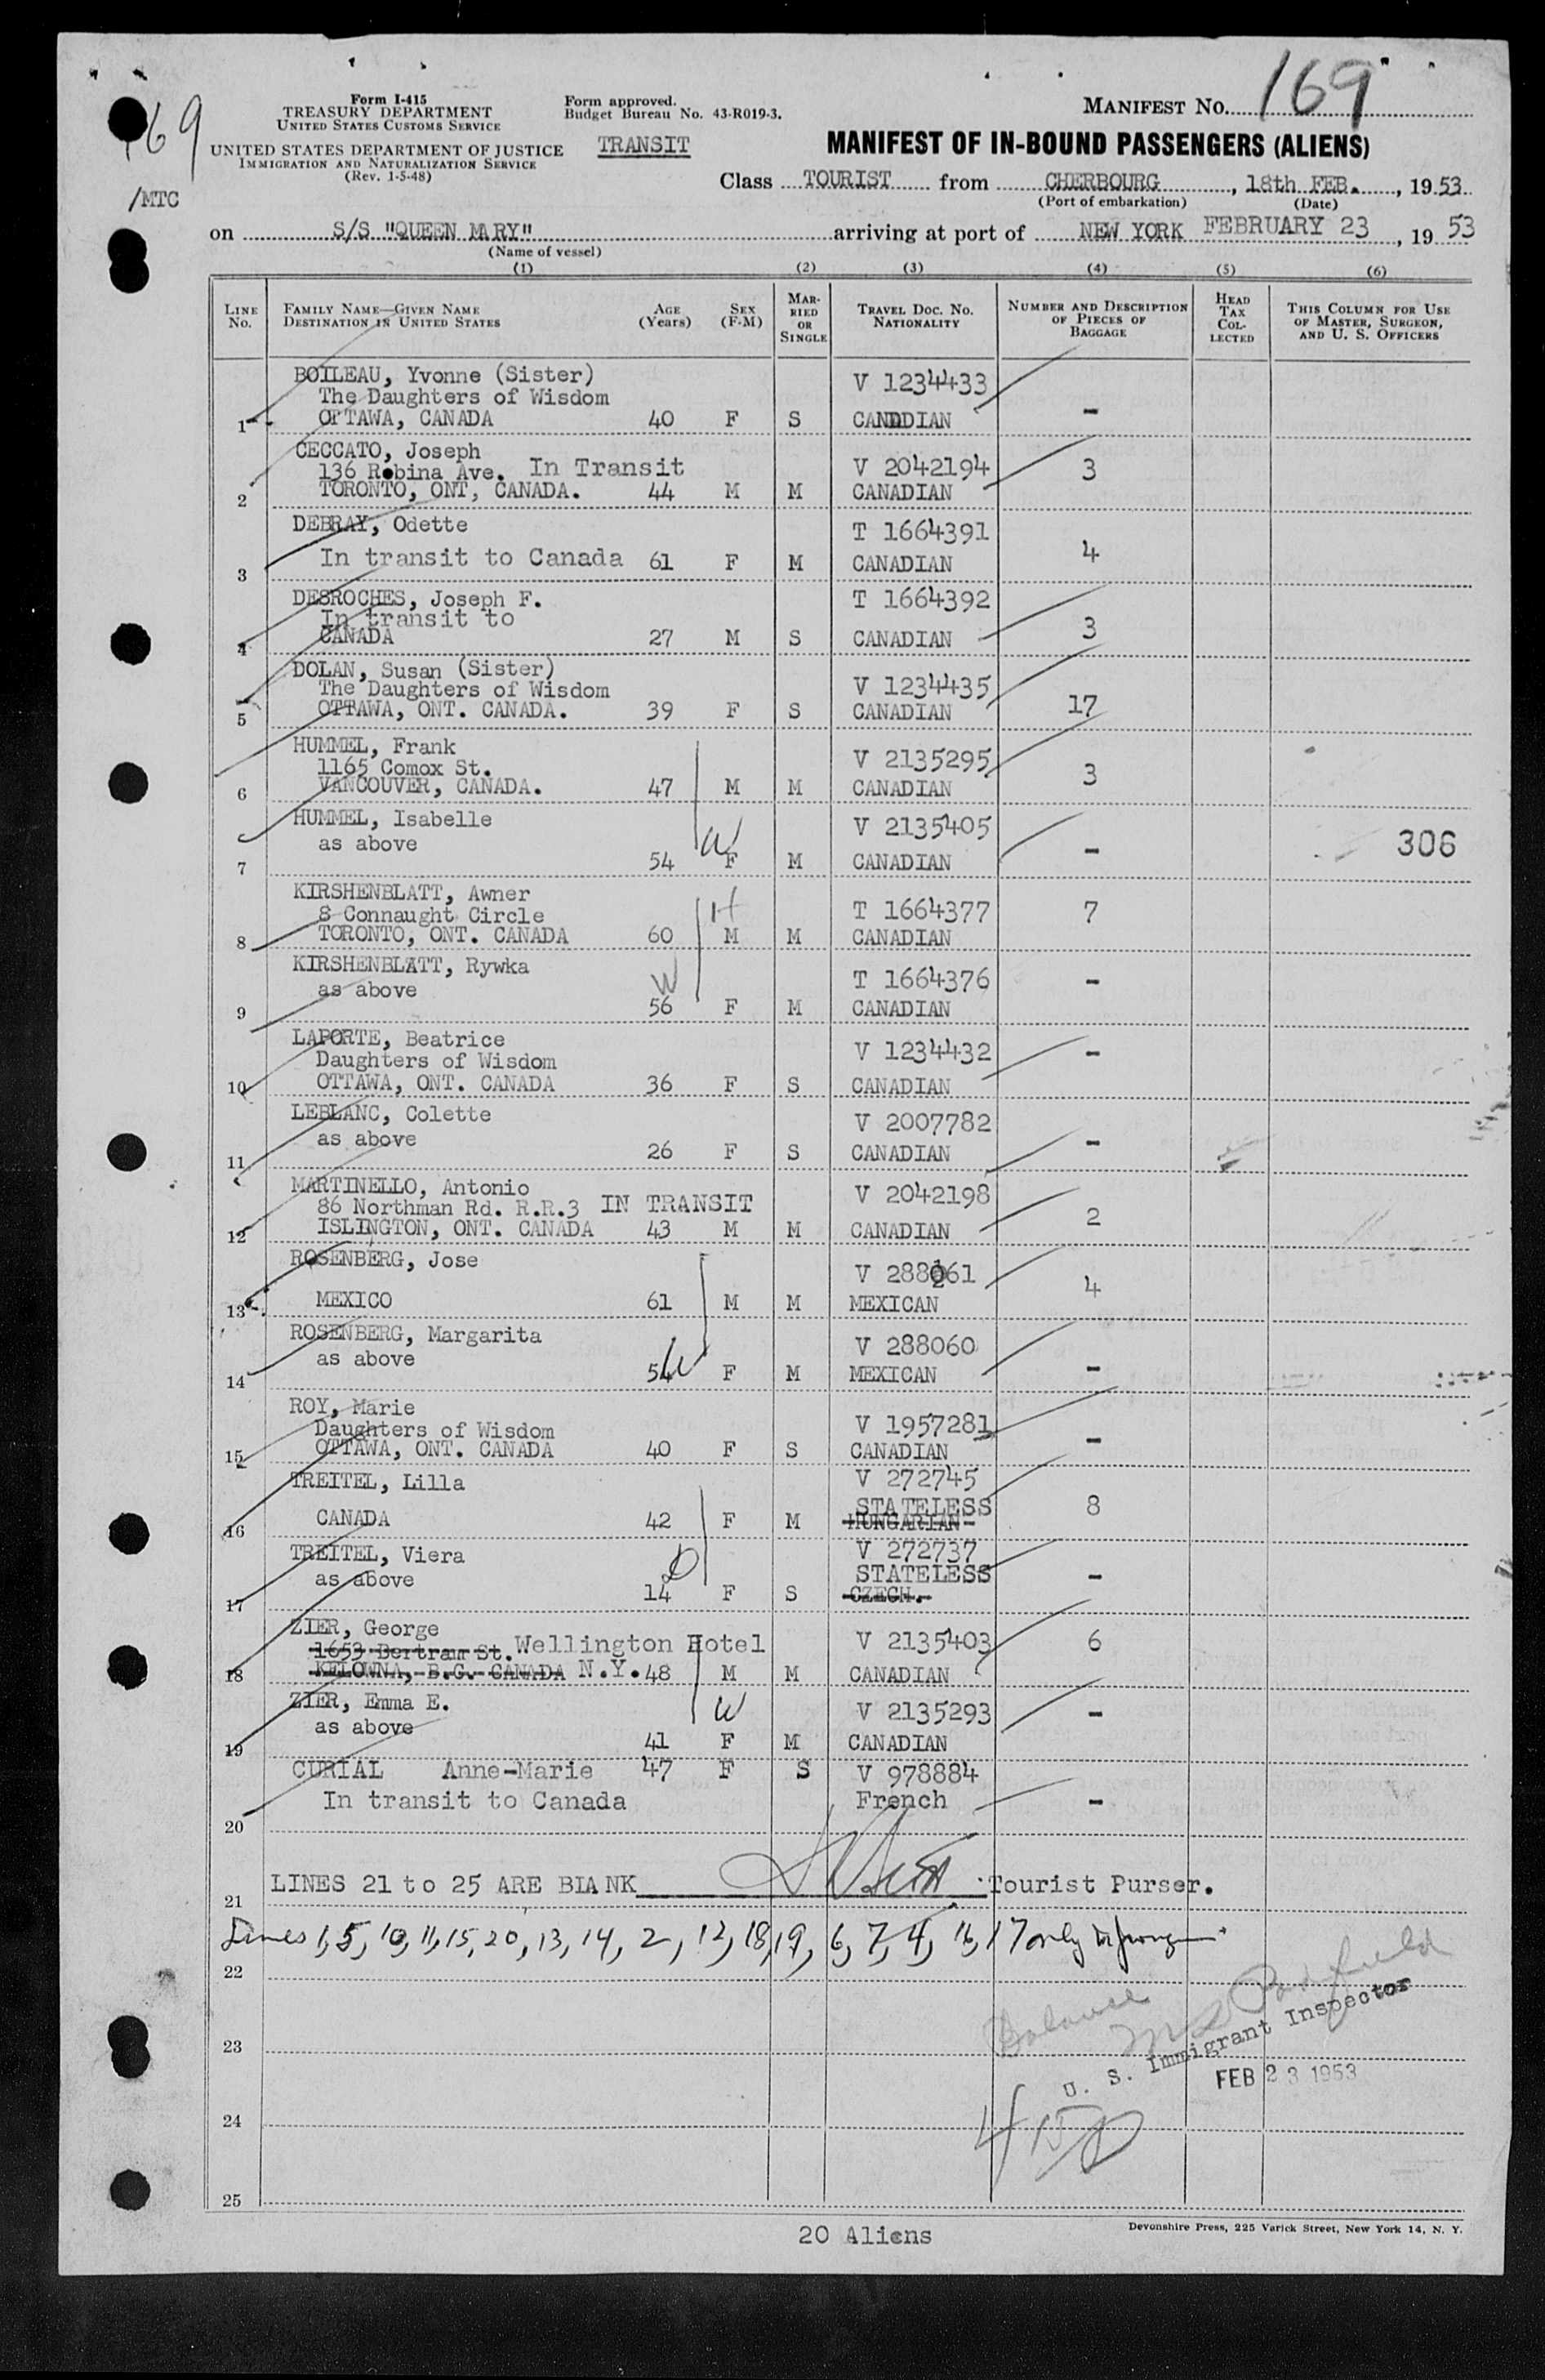 169
69
/MTC
Form I-415
TREASURY DEPARTMENT
UNITED STATES CUSTOMS SERVICE
UNITED STATES DEPARTMENT OF JUSTICE
IMMIGRATION AND NATURALIZATION SERVICE
(Rev. 1-5-48)
Form approved.
Budget Bureau No. 43-R019-3.
TRANSIT
MANIFEST NO.
MANIFEST OF IN-BOUND PASSENGERS (ALIENS)
Class TOURIST from CHERBOURG, 18th FEB., 19 53
(Port of embarkation) (Date)
on S/S "QUEEN MARY" arriving at port of NEW YORK FEBRUARY 23, 19 53
(Name of vessel)
(1) (2) (3) (4) (5) (6)
LINE No. FAMILY NAME—GIVEN NAME DESTINATION IN UNITED STATES AGE (Years) SEX (F-M) MARRIED OR SINGLE TRAVEL DOC. NO. NATIONALITY NUMBER AND DESCRIPTION OF PIECES OF BAGGAGE HEAD TAX COLLECTED THIS COLUMN FOR USE OF MASTER, SURGEON, AND U. S. OFFICERS
BOILEAU, Yvonne (Sister) V 1234433
The Daughters of Wisdom
1 OTTAWA, CANADA 40 F S CANADIAN -
CECCATO, Joseph
136 Robina Ave. In Transit V 2042194 3
2 TORONTO, ONT, CANADA. 44 M M CANADIAN
DEBRAY, Odette T 1664391
3 In transit to Canada 61 F M CANADIAN 4
DESROCHES, Joseph F. T 1664392
In transit to
4 CANADA 27 M S CANADIAN 3
DOLAN, Susan (Sister)
The Daughters of Wisdom V 1234435
5 OTTAWA, ONT. CANADA. 39 F S CANADIAN 17
HUMMEL, Frank
1165 Comox St. V 2135295
6 VANCOUVER, CANADA. 47 M M CANADIAN 3
HUMMEL, Isabelle V 2135405
as above W 306
7 54 F M CANADIAN -
KIRSHENBLATT, Awner H
8 Connaught Circle T 1664377 7
8 TORONTO, ONT. CANADA 60 M M CANADIAN
KIRSHENBLATT, Rywka W T 1664376 -
as above
9 56 F M CANADIAN
LAPORTE, Beatrice
Daughters of Wisdom V 1234432 -
10 OTTAWA, ONT. CANADA 36 F S CANADIAN
LEBLANC, Colette V 2007782
as above
11 26 F S CANADIAN -
MARTINELLO, Antonio V 2042198
86 Northman Rd. R.R.3 IN TRANSIT
12 ISLINGTON, ONT. CANADA 43 M M CANADIAN 2
ROSENBERG, Jose
13 MEXICO 61 M M MEXICAN 4
ROSENBERG, Margarita V 288060
as above W
14 54 F M MEXICAN -
ROY, Marie
Daughters of Wisdom V 1957281
15 OTTAWA, ONT. CANADA 40 F S CANADIAN -
TREITEL, Lilla V 272745
STATELESS 8
16 CANADA 42 F M HUNGARIAN
TREITEL, Viera V 272737
as above D STATELESS -
17 14 F S CZECH.
ZIER, George
1653 Bertram St. Wellington Hotel V 2135403 6
18 KELOWNA, B.C. CANADA N.Y. 48 M M CANADIAN
ZIER, Emma E. W V 2135293 -
as above
19 41 F M CANADIAN
CURIAL Anne-Marie 47 F S V 978884
In transit to Canada French -
20
21 LINES 21 to 25 ARE BLANK Tourist Purser.
Lines 1, 5, 10, 11, 15, 20, 13, 14, 2, 12, 18, 19, 6, 7, 4, 16, 17 only
22
Balance
23
U. S. Immigrant Inspector
FEB 23 1953
24
25
20 Aliens
Devonshire Press, 225 Varick Street, New York 14, N. Y.